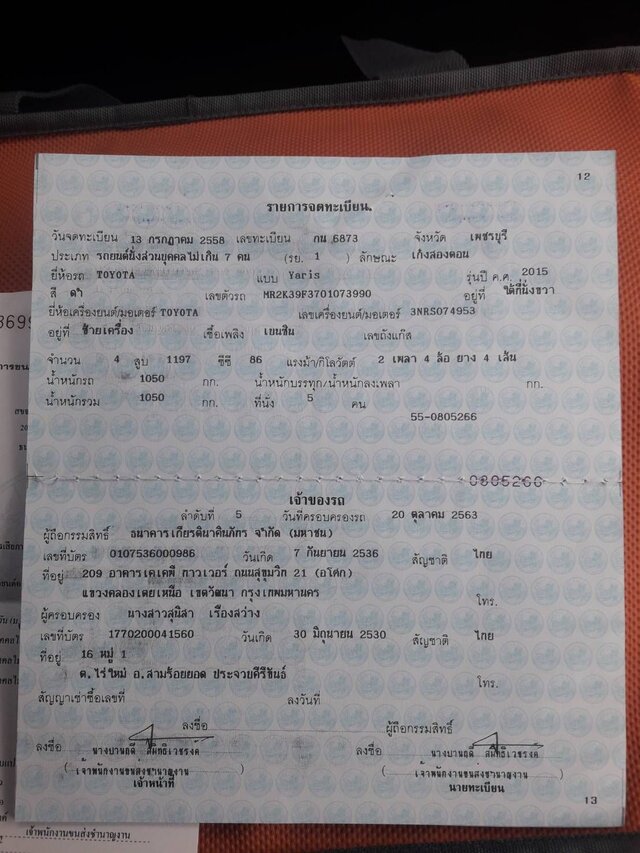 12
รายการจดทะเบียน.
วันจดทะเบียน 13 กรกฎาคม 2558 เลขทะเบียน กน 6873 จังหวัด เพชรบุรี
ประเภท รถยนต์นั่งส่วนบุคคลไม่เกิน 7 คน (รย. 1 ) ลักษณะ เก๋งสองตอน
ยี่ห้อรถ TOYOTA แบบ Yaris รุ่นปี ค.ศ. 2015
สี ดำ เลขตัวรถ MR2K39F3701073990 อยู่ที่ ใต้ที่นั่งขวา
ยี่ห้อเครื่องยนต์/มอเตอร์ TOYOTA เลขเครื่องยนต์/มอเตอร์ 3NRS074953
อยู่ที่ ซ้ายเครื่อง เชื้อเพลิง เบนซิน เลขถังแก๊ส
จำนวน 4 สูบ 1197 ซีซี 86 แรงม้า/กิโลวัตต์ 2 เพลา 4 ล้อ ยาง 4 เส้น
น้ำหนักรถ 1050 กก. น้ำหนักบรรทุก/น้ำหนักลงเพลา กก.
น้ำหนักรวม 1050 กก. ที่นั่ง 5 คน
55-0805266
0805266
เจ้าของรถ
ลำดับที่ 5 วันที่ครอบครองรถ 20 ตุลาคม 2563
ผู้ถือกรรมสิทธิ์ ธนาคารเกียรตินาคินภัทร จำกัด (มหาชน)
เลขที่บัตร 0107536000986 วันเกิด 7 กันยายน 2536 สัญชาติ ไทย
ที่อยู่ 209 อาคารเคเคพี ทาวเวอร์ ถนนสุขุมวิท 21 (อโศก)
แขวงคลองเตยเหนือ เขตวัฒนา กรุงเทพมหานคร โทร.
ผู้ครอบครอง นางสาวสุนิสา เรืองสว่าง
เลขที่บัตร 1770200041560 วันเกิด 30 มิถุนายน 2530 สัญชาติ ไทย
ที่อยู่ 16 หมู่ 1
ต.ไร่ใหม่ อ.สามร้อยยอด ประจวบคีรีขันธ์ โทร.
สัญญาเช่าซื้อเลขที่ ลงวันที่
ลงชื่อ ผู้ถือกรรมสิทธิ์
ลงชื่อ ลงชื่อ
(เจ้าพนักงานขนส่งชำนาญงาน) (เจ้าพนักงานขนส่งชำนาญงาน)
เจ้าหน้าที่ นายทะเบียน
13
เจ้าพนักงานขนส่งชำนาญงาน